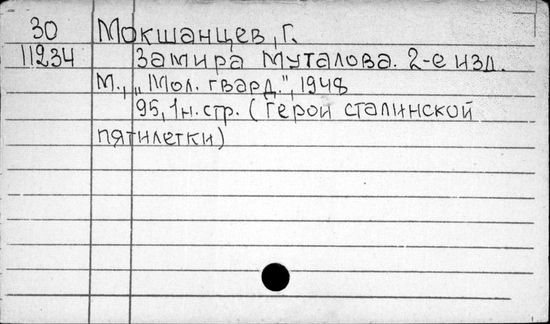 30 Мокшанцев, Г.
11234 Замира Муталова. 2-е изд.
М., „Мол. гвард.", 1948
95, 1 н. стр. (Герои сталинской
пятилетки)